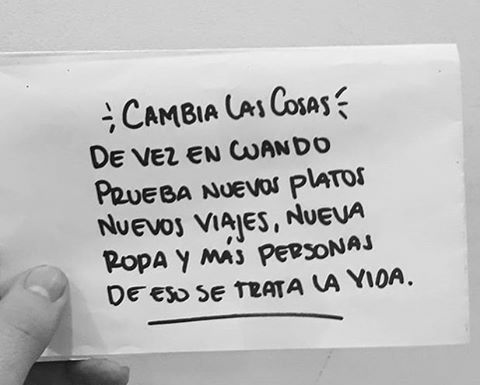 CAMBIA LAS COSAS
DE VEZ EN CUANDO
PRUEBA NUEVOS PLATOS
NUEVOS VIAJES, NUEVA
ROPA Y MÁS PERSONAS
DE ESO SE TRATA LA VIDA.